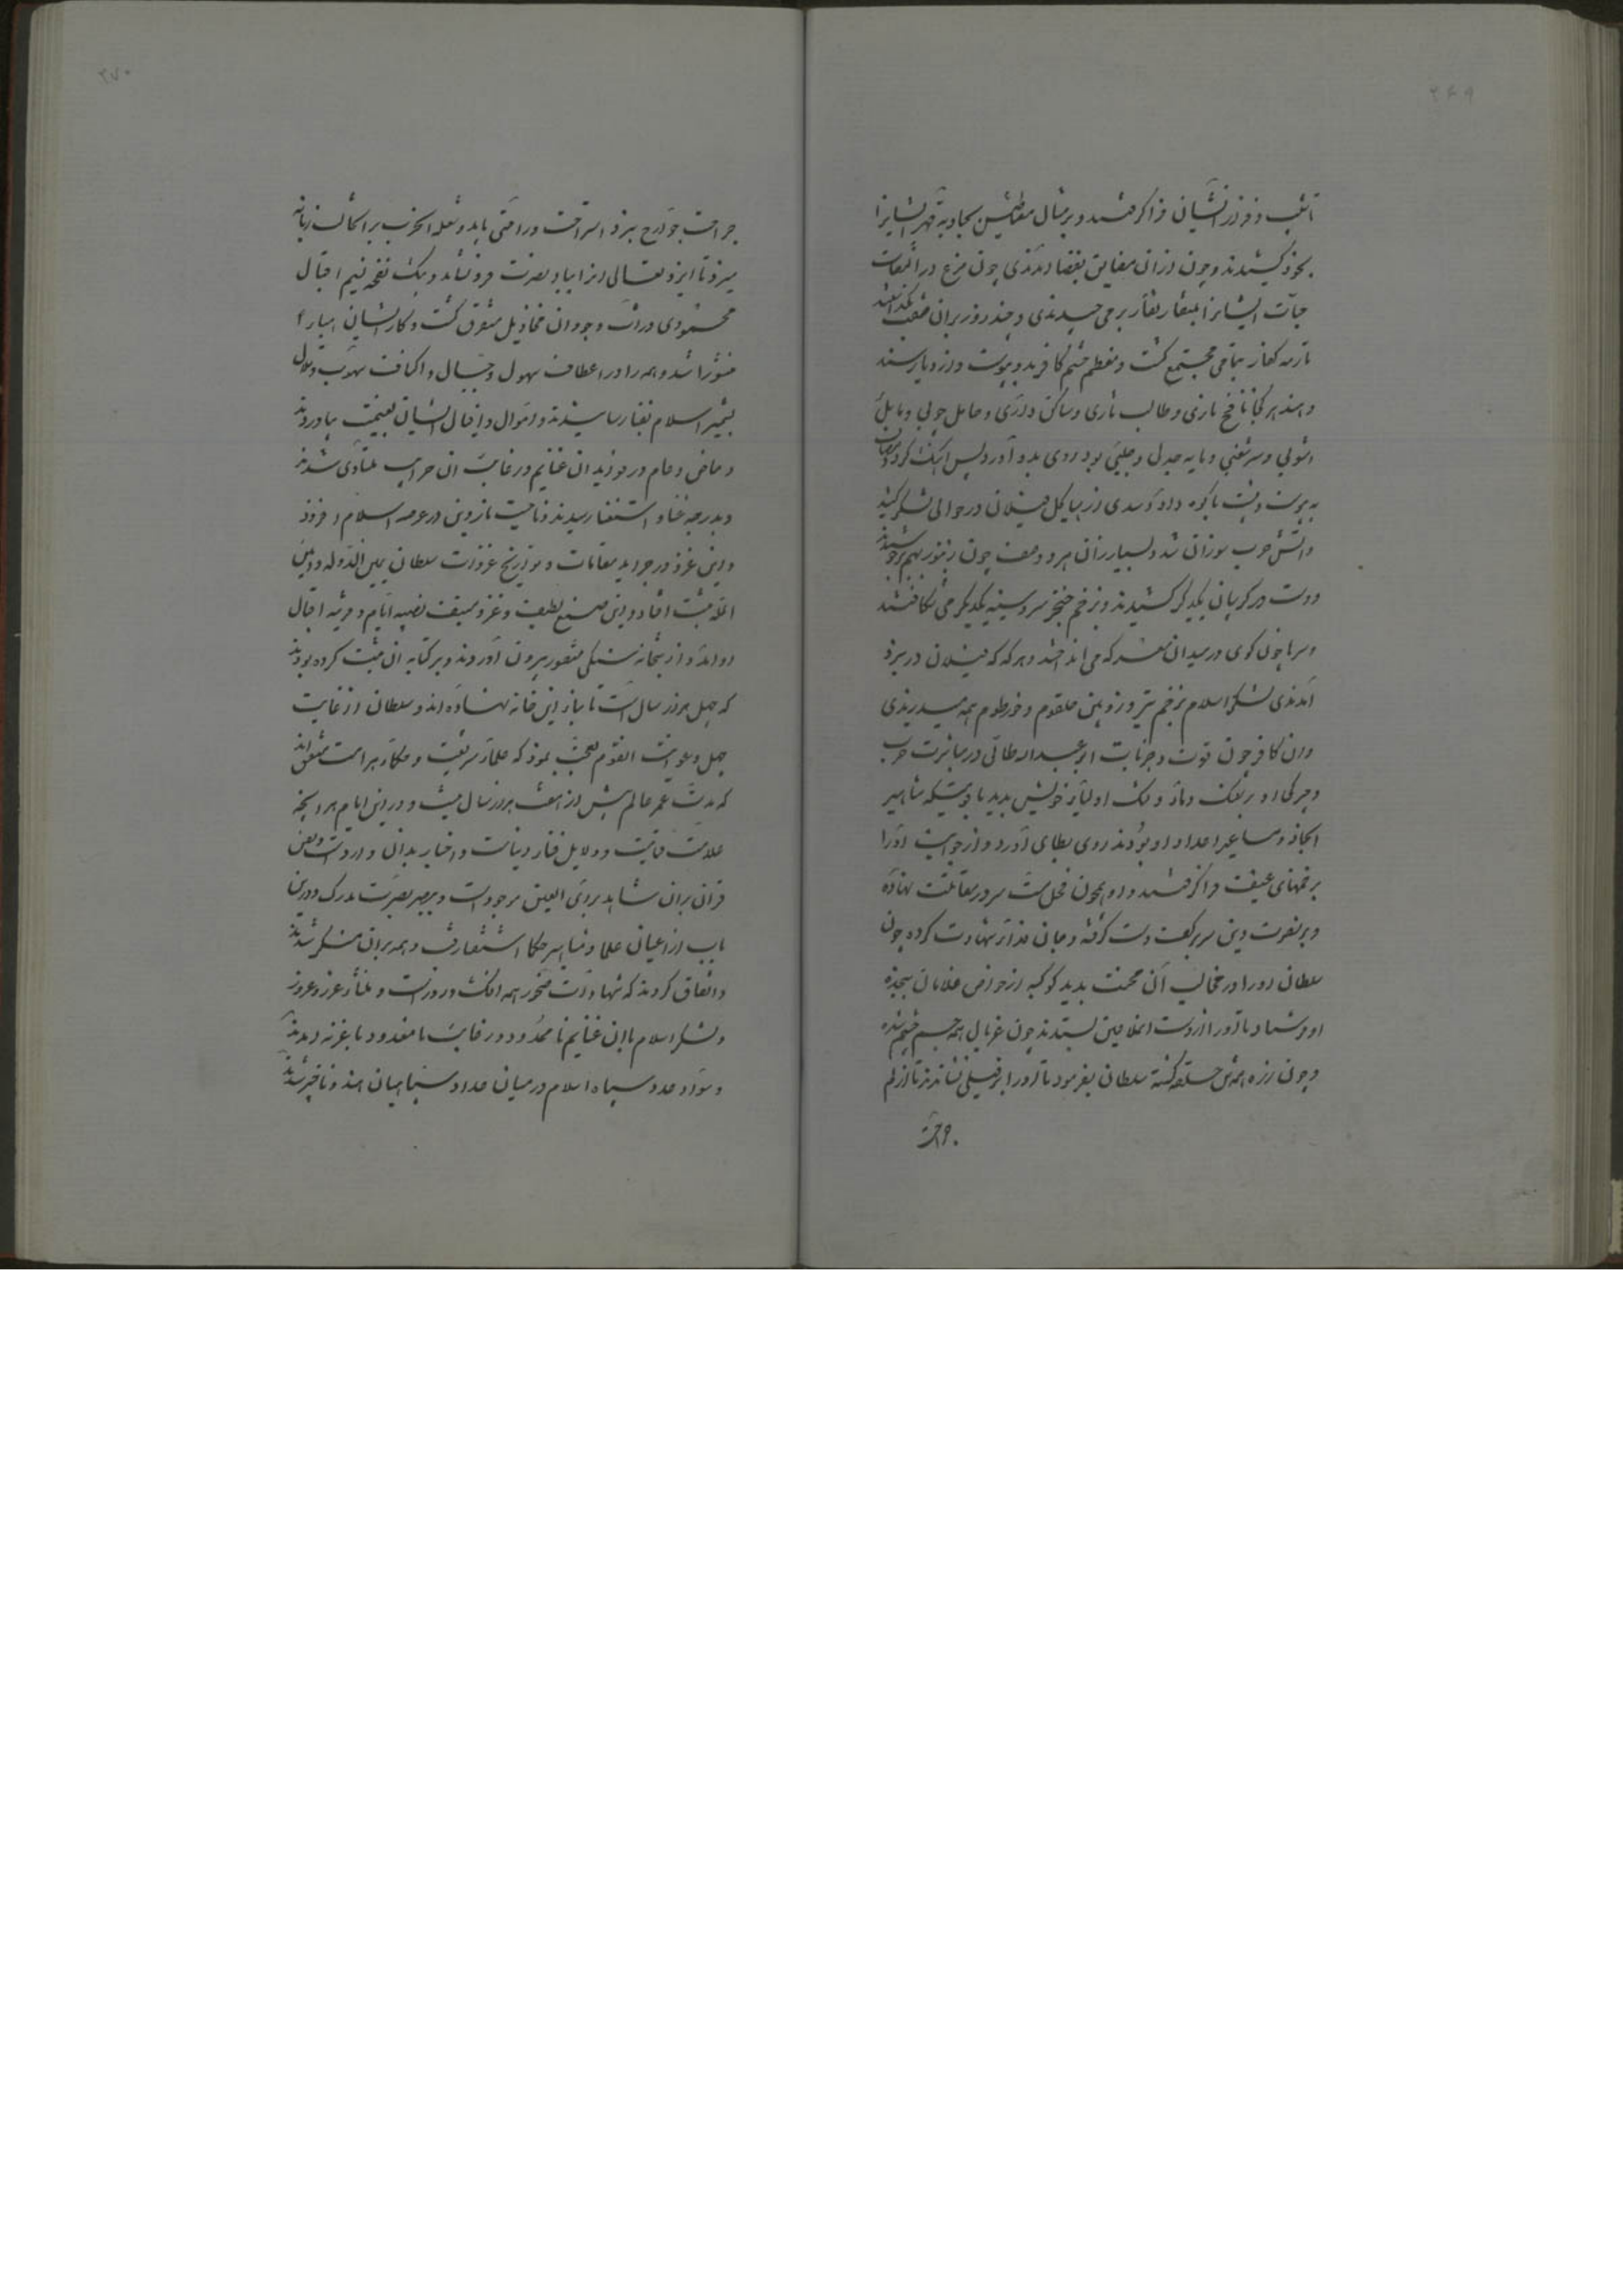 ۲۶۹
آشیب و فرار ایشان فرا گرفتند و بر مثال مغناطیس بجاذبه قهر ایشانرا
بخود کشیدند و چون از ان مضایق بفضا آمدندی چون مرغ در التقاط
حبات ایشانرا بمنقار نقار بر می چیدندی و چند روز بران صفت بگذاشتند
تا رمه کفار بتمامی مجتمع گشت و معظم حشم کافر بدو پیوست و از دیار سند
و هند هر کجا نافخ ناری و طالب ثاری و ساکن داری و حامل چوبی و
آشوبی و سر شغبی و مایه جدل و جلبی بود روی بدو آورد پس
به پیوست و پشت با کوه داد و سدی از هیاکل فیلان در حوالی لشکر کشید
و آتش حرب سوزان شد و بسیار زان هر دو صف چون زنبور بهم بر جوشیدند
و دست در گریبان یکدیگر کشیدند و بزخم خنجر سر و سینه یکدیگر می شکافتند
و سرها چون گوی در میدان معرکه می انداختند و هر گه که فیلان در نبرد
آمدندی لشکر اسلام بزخم تیر و زوبین حلقوم و خرطوم همه میدریدندی
و ان کافر چون قوت و جرات ابو عبدالله طائی در مباشرت حرب
و چرگی او بر سفک دماء و فتک اولیاء خویش بدید با دویتکه مشاهیر
انجاد و مساعیر اعداد او بودند روی بطائی آورد و از جوانب او را
بزخمهای عنیف فرا گرفتند و او همچون فحل مست سر در مقاتلت نهاده
و بر نصرت دین سر بر کف دست گرفته و جان فداء شهادت کرده چون
سلطان او را در مخالب آن محنت بدید کوکبه از خواص غلامان بنجده
او فرستاد تا او را از دست ان ملاعین بستدند چون غربال همه جسم چشم شده
و چون زره همه تن حلقه گشته سلطان بفرمود تا او را بر فیلی نشاندند تا از الم
جراحت
۲۷۰
جراحت جوارح بترد استراحت و رافتی یابد و شعله الحرب بر آنحالت زبانه
میزد تا ایزد تعالی انرا بباد نصرت فرو نشاند و بیک نفحه نسیم اقبال
محمودی در اثناء وجود ان مخاذیل متفرق گشت و کار ایشان هباء
منثورا شد و همه را در اعطاف سهول و جبال و اکناف سهوب و تلال
بشمشیر اسلام بفنا رسانیدند و اموال و افیال ایشان بغنیمت بیاوردند
و خاص و عام در توزیع ان غنایم و رغایب ان حرایب متساوی شدند
و بدرجه غنا و استغنا رسیدند و ناحیت نارین در عرصه اسلام افزود
و این غزو در جراید مقامات و تواریخ غزوات سلطان یمین الدوله و امین
المله مثبت افتاد و این صنع لطیف و غزو منیف نصیبه ایام و قرینه اقبال
او آمد و از بتخانه سنگی منقور بیرون آوردند و بر کتابه ان مثبت کرده بودند
که چهل هزار سال است تا بناء این خانه نهاده اند و سلطان از غایت
جهل و غوایت القوم تعجب نمود که علماء شریعت و حکماء براعت متفق اند
که مدت عمر عالم بیش از هفت هزار سال نیست و در این ایام هر آنچه
علامت قیامت و دلایل فناء دنیاست و اخبار بدان وارد است و نص
قرآن بران شاهد برای العین موجود است و ببصر بصیرت مدرک و در این
باب از اعیان علما و مشاهیر حکما استشعار رفت و همه بران منکر شدند
و اتفاق کردند که شهادات صخور همه افک و زور است و
و لشکر اسلام با ان غنایم نامحدود و رغایب نامعدود با غزنه آمدند
و سواد عدد سپاه اسلام در میان عداد سپاهیان هند ناچیز شدند